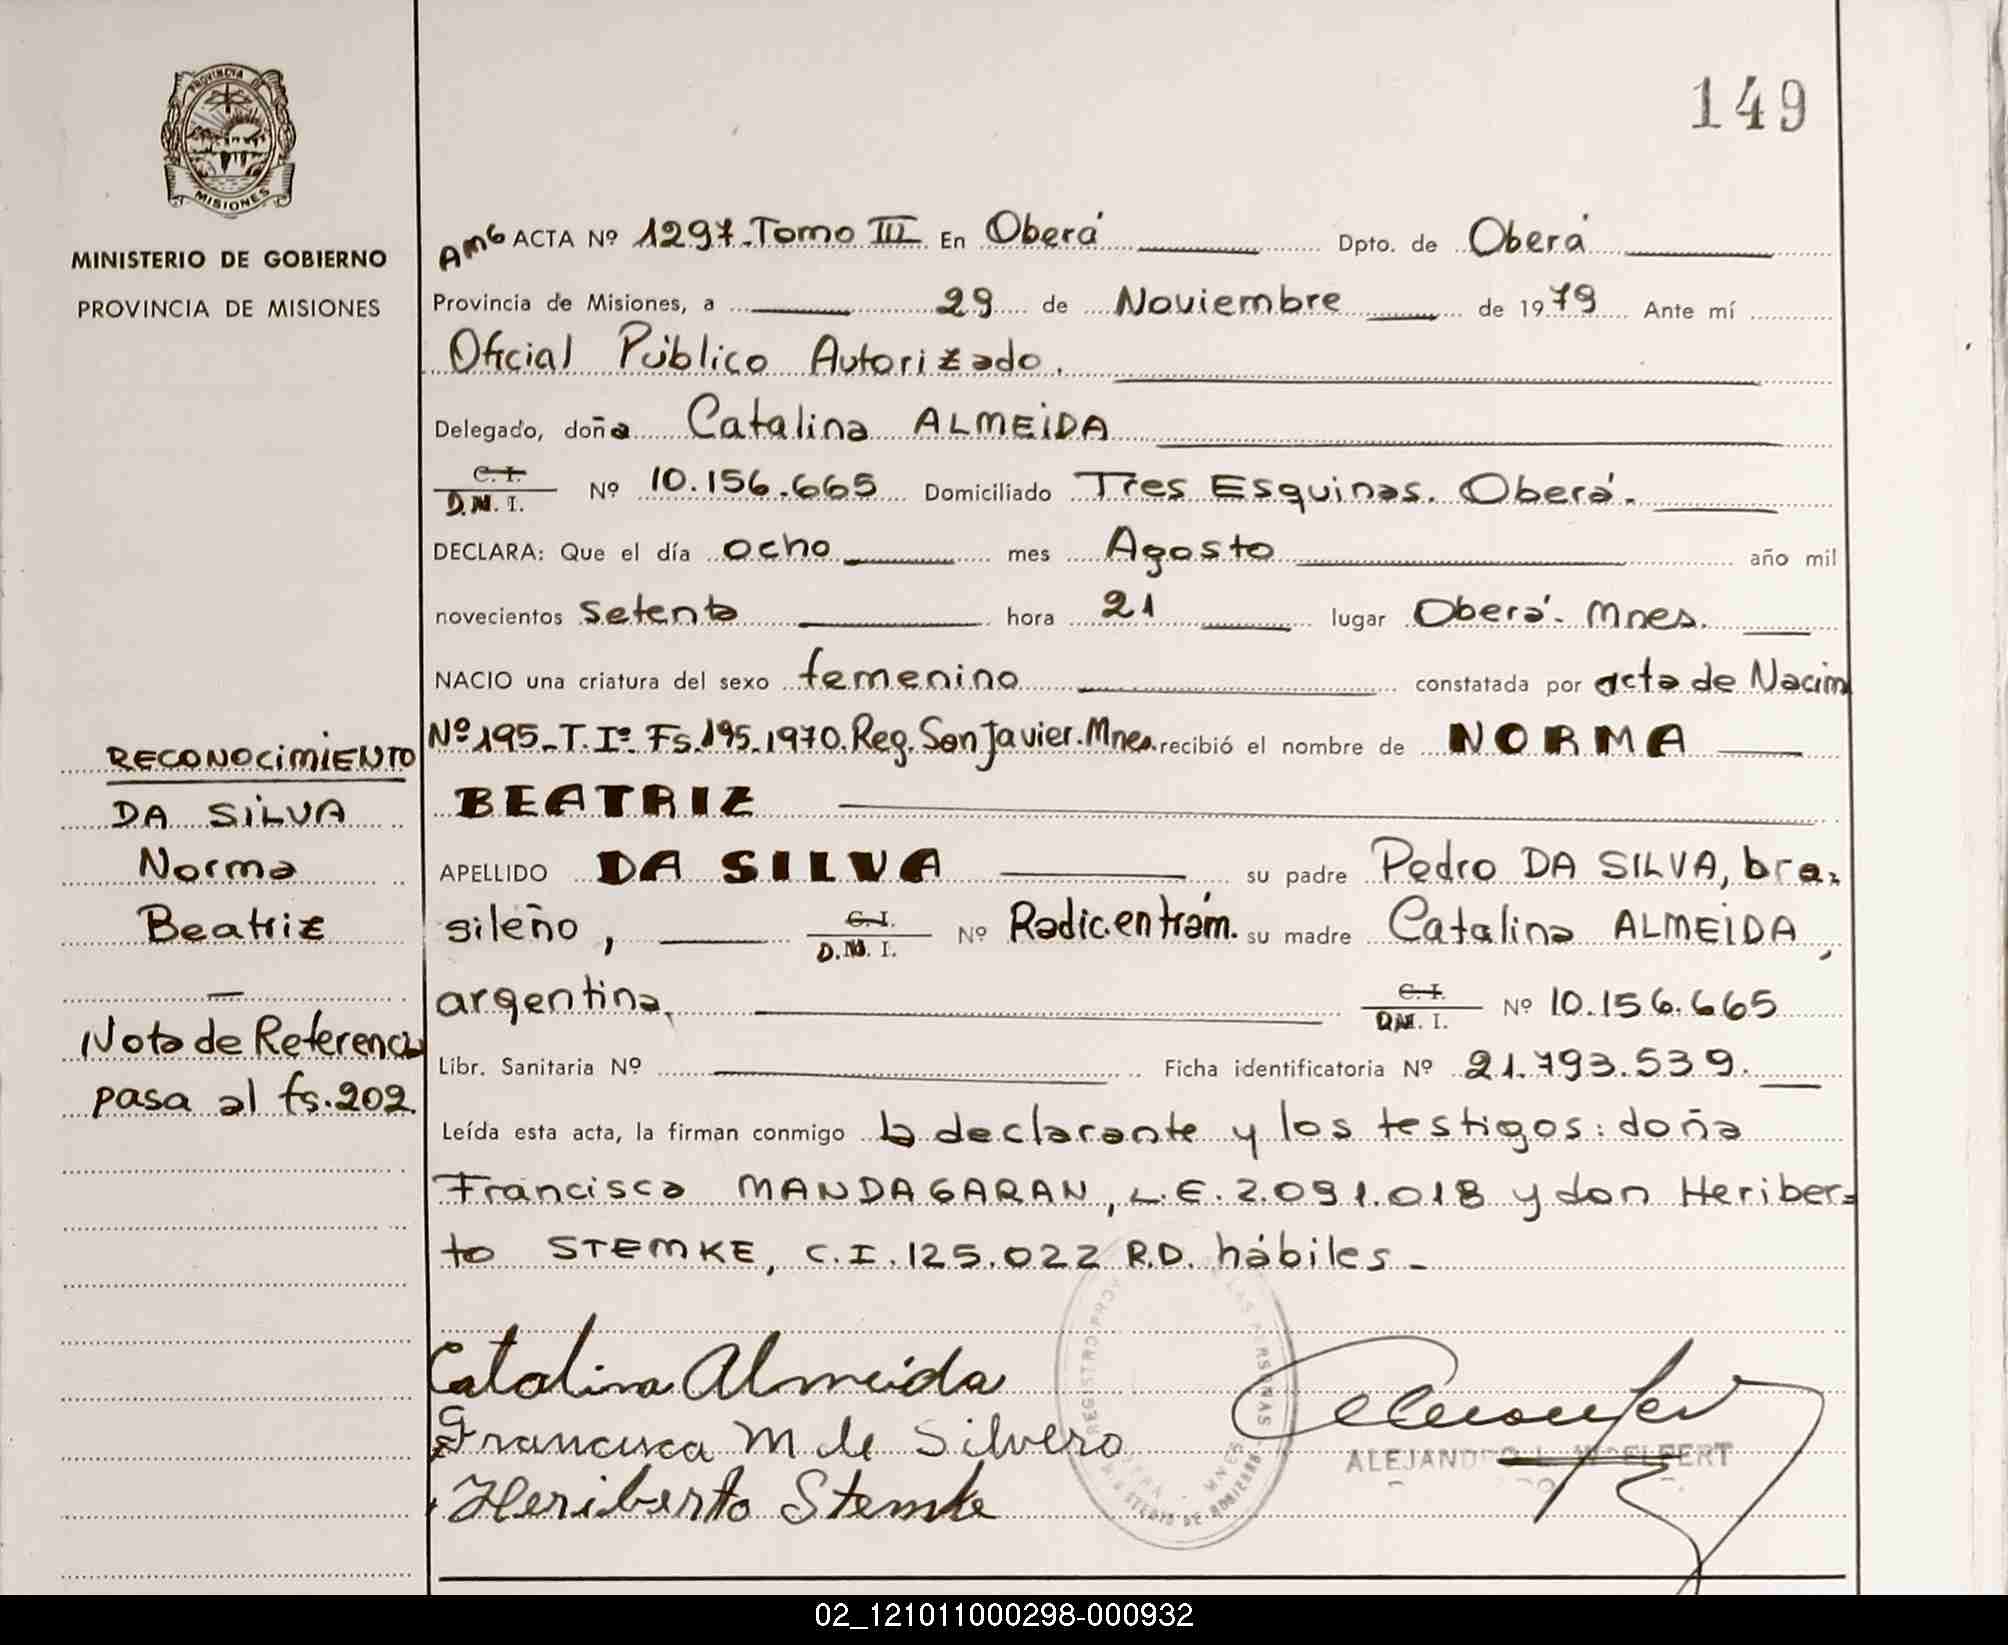 PROVINCIA DE
MISIONES
MINISTERIO DE GOBIERNO
PROVINCIA DE MISIONES
149
AMG ACTA Nº 1297.Tomo III En Oberá Dpto. de Oberá
Provincia de Misiones, a 29 de Noviembre de 1979 Ante mí
Oficial Público Autorizado.
Delegado, doña Catalina ALMEIDA
C. I.
D.N. I. Nº 10.156.665 Domiciliado Tres Esquinas. Oberá.
DECLARA: Que el día ocho mes Agosto año mil
novecientos setenta hora 21 lugar Oberá. Mnes.
NACIO una criatura del sexo femenino constatada por acta de Nacim
Nº 195-T.Iº Fs.195.1970.Reg.San Javier.Mnes. recibió el nombre de NORMA
BEATRIZ
APELLIDO DA SILVA su padre Pedro DA SILVA, bra-
sileño, C. I.
D.N. I. Nº Radic.en trám. su madre Catalina ALMEIDA,
argentina. C. I.
D.N. I. Nº 10.156.665
Libr. Sanitaria Nº Ficha identificatoria Nº 21.793.539.
Leída esta acta, la firman conmigo la declarante y los testigos: doña
Francisca MANDAGARAN, L.E.2.091.018 y don Heriber=
to STEMKE, C.I.125.022 R.D. hábiles.-
RECONOCIMIENTO
DA SILVA
Norma
Beatriz
Nota de Referencia
pasa al fs.202.
Catalina Almeida
Francisca M de Silvero
Heriberto Stemke
REGISTRO PROV LAS PERSONAS
MNES
ALEJANDRO L. ELFERT
02_121011000298-000932